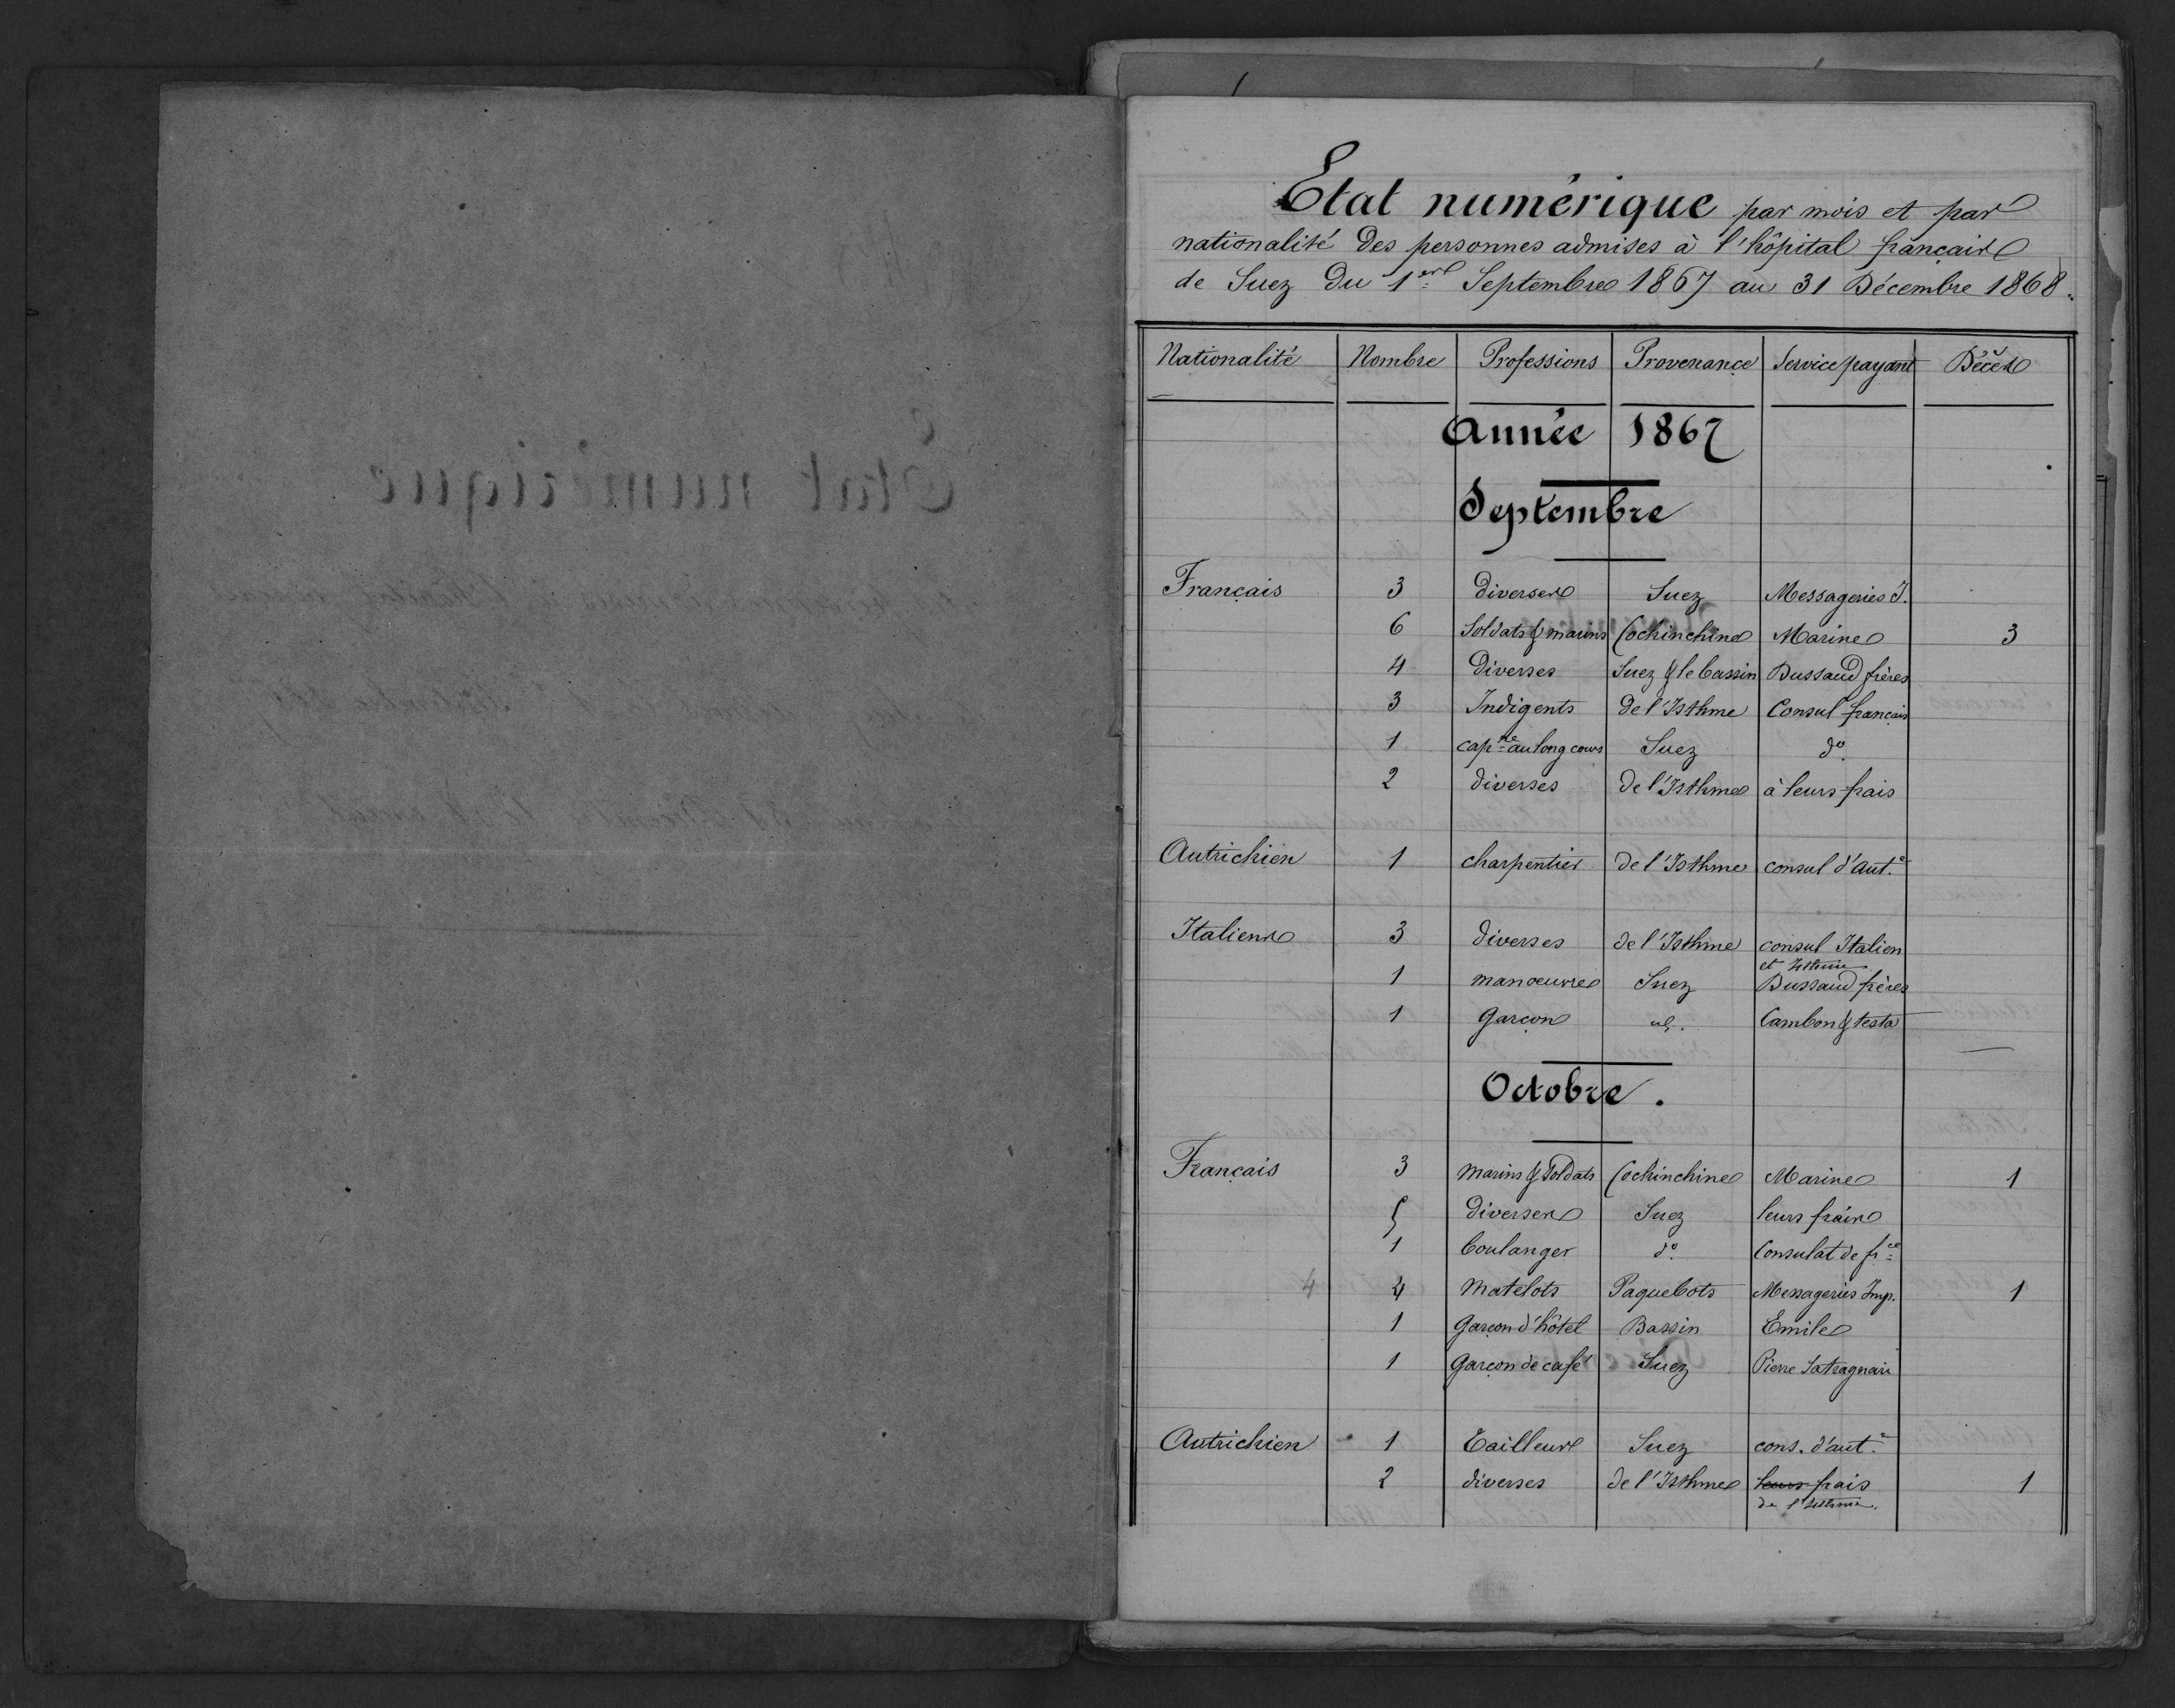 Etat numérique par mois et par
nationalité des personnes admises à l'hôpital français
de Suez du 1er Septembre 1867 au 31 Décembre 1868.
Nationalité Nombre Professions Provenance Service payant Décès
Année 1867
Septembre
Français 3 diverses Suez Messageries I.
6 Soldats & marins Cochinchine Marine 3
4 diverses Suez & le bassin Dussaud frères
3 Indigents de l'Isthme Consul français
1 capne au long cours Suez do
2 diverses de l'Isthme à leurs frais
Autrichien 1 charpentier de l'Isthme consul d'Aut.e
Italiens 3 diverses de l'Isthme consul Italien
et Isthme
1 manoeuvre Suez Dussaud frères
1 Garçon id. Cambon & testa
Octobre.
Français 3 marins & soldats Cochinchine Marine 1
5 diverses Suez leurs frais
1 boulanger do Consulat de fce
4 4 matelots Paquebots Messageries Imp. 1
1 Garçon d'hôtel Bassin Emile
1 Garçon de café Suez Pierre
Autrichien 1 Tailleur Suez cons. d'aut.e
2 diverses de l'Isthme leurs frais 1
de l'Isthme.
Etat numérique